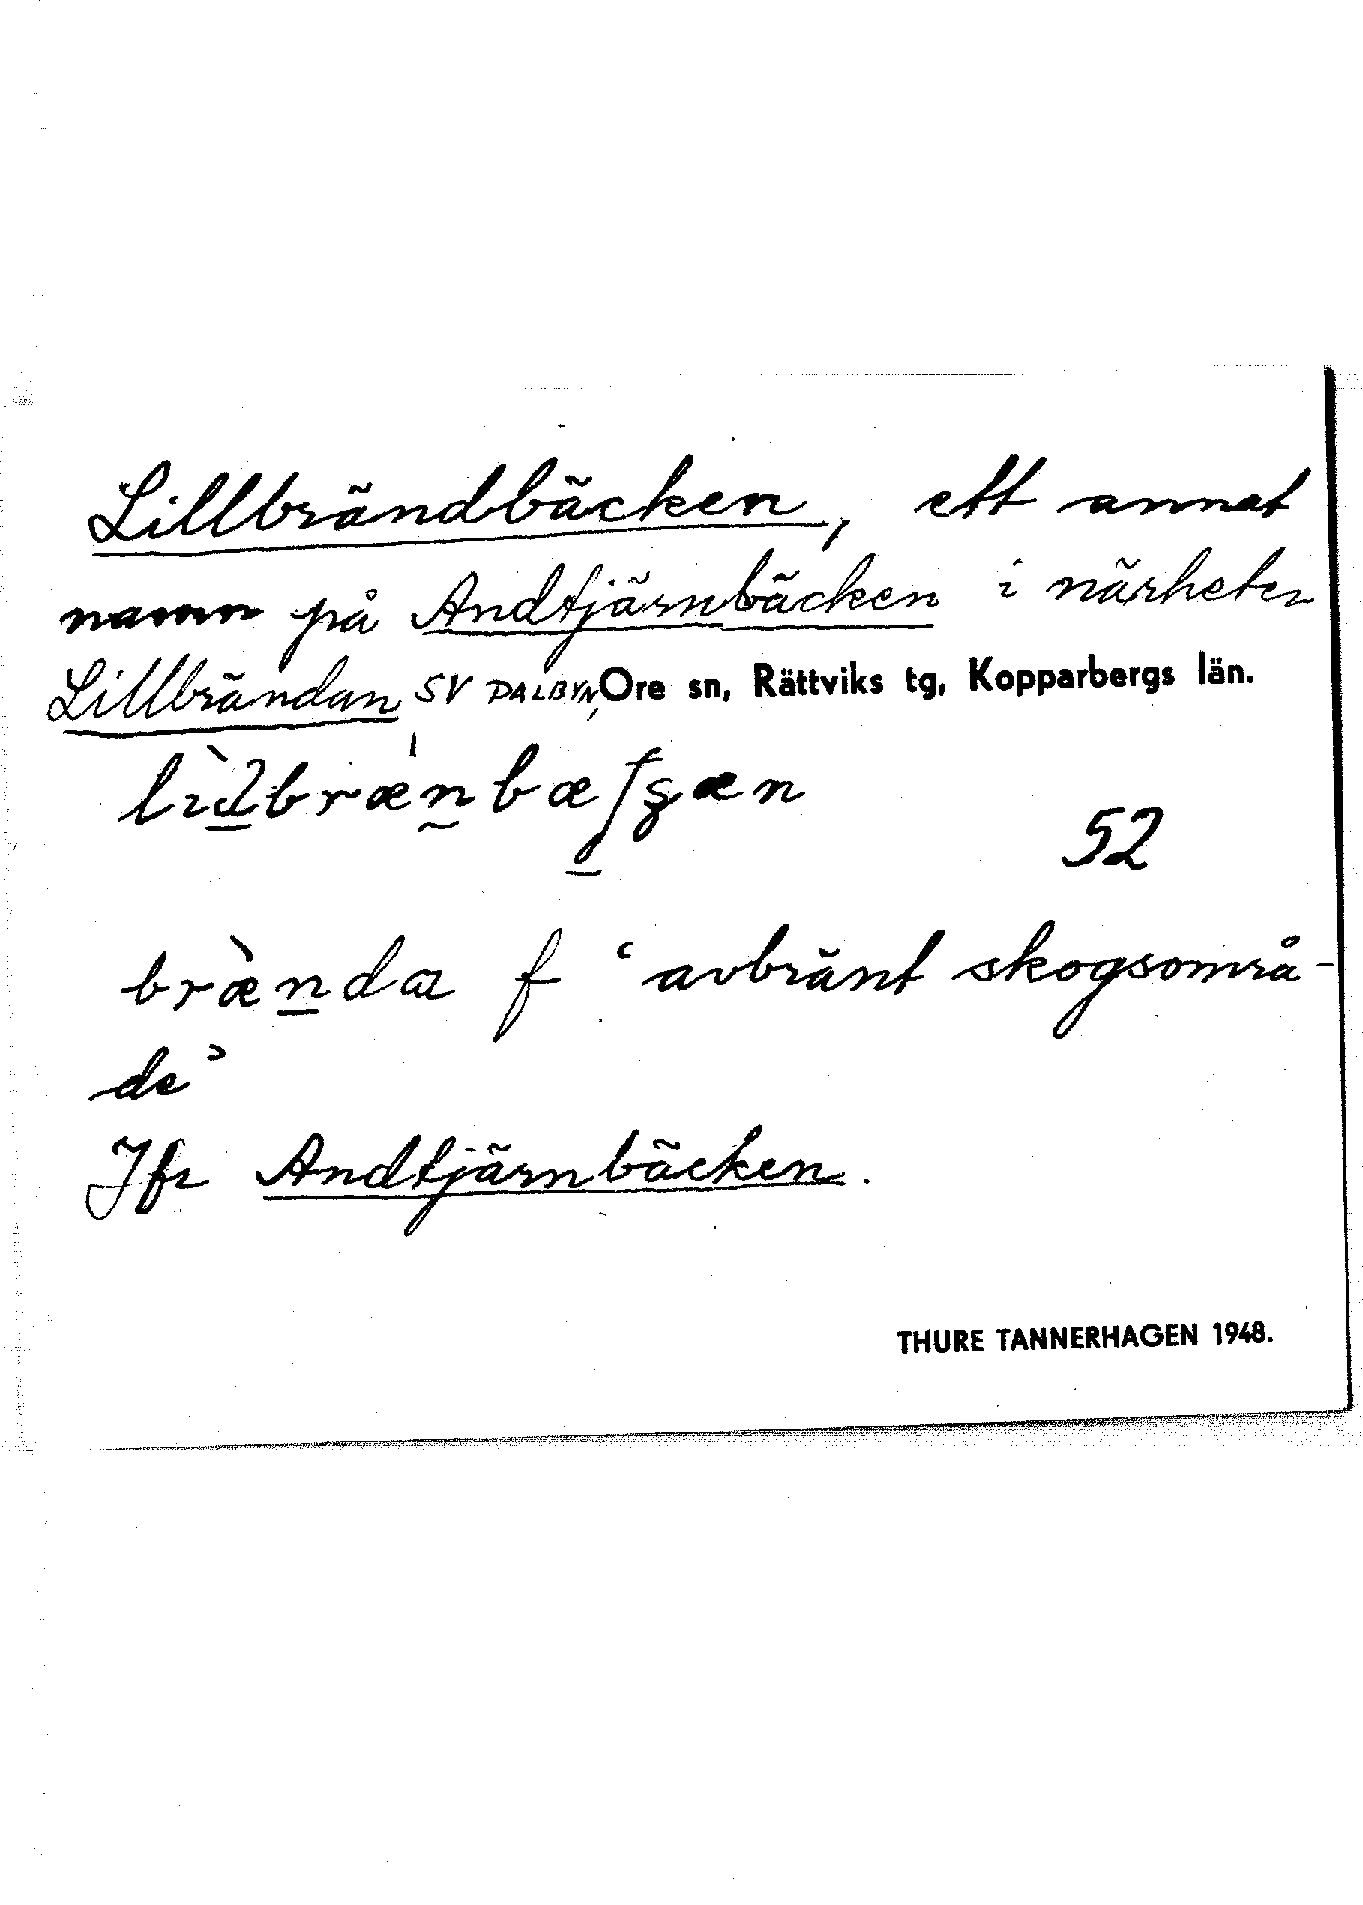 Lillbrändbäcken, ett annat
namn på Andtjärnbäcken i närheten
Lillbrändan SV DALBYN, Ore sn, Rättviks tg, Kopparbergs län.
52
brænda f ‘avbränt skogsområ-
de’
Jfr Andtjärnbäcken.
THURE TANNERHAGEN 1948.